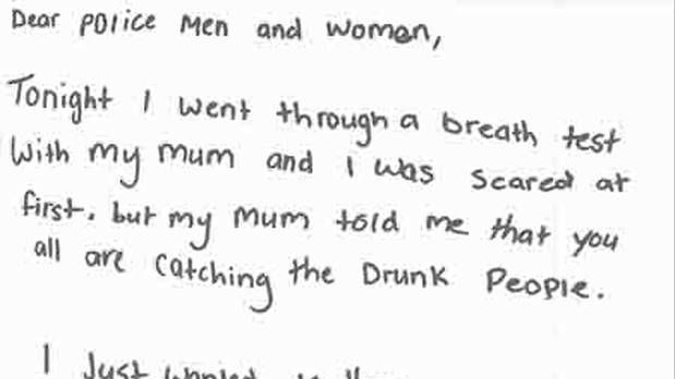 Dear police Men and Woman,
Tonight I went through a breath test
with my mum and I was scared at
first. but my mum told me that you
all are catching the Drunk People.
I Just wanted